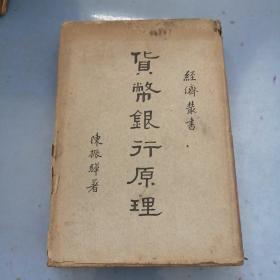 經濟叢書
貨幣銀行原理
陳振驊著